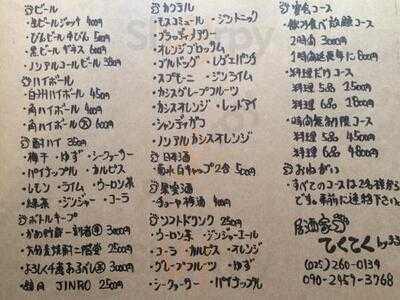 ビール
・生ビールジョッキ 400円
・びんビール 中びん 500円
・黒ビール ギネス 600円
・ノンアルコールビール 350円
ハイボール
・白州ハイボール 450円
・角ハイボール 400円
・角ハイボール 大 600円
酎ハイ 350円
・梅干・ゆず・シークヮーサー
・パイナップル ・カルピス
・レモン・ライム・ウーロン茶
・緑茶・ジンジャー・コーラ
ボトルキープ
・大分麦焼酎二階堂 2500円
・鏡月 JINRO 2500円
カクテル
・モスコミュール・ジントニック
・オレンジブロッサム
・ブルドッグ・レゲエパンチ
・スプモーニ ・ジンライム
・カシスグレープフルーツ
・カシスオレンジ・レッドアイ
・シャンディガフ
・ノンアルカシスオレンジ
日本酒
・菊水白キャップ 2合 500円
果実酒
・チョーヤ梅酒 400円
ソフトドリンク 250円
・ウーロン茶・ジンジャーエール
・コーラ・カルピス・オレンジ
・グレープフルーツ・ゆず
・シークヮーサー・パイナップル
宴会コース
飲み食べ放題コース
2時間 3000円
1時間延長毎に 800円
料理だけコース
料理5品 1500円
料理6品 1800円
・時間無制限コース
料理5品 4500円
料理6品 4800円
おねがい
すべてのコースは2名様から
です。事前に連絡下さい。
居酒家
てくてく
(025) 260-0139
090-2459-3768